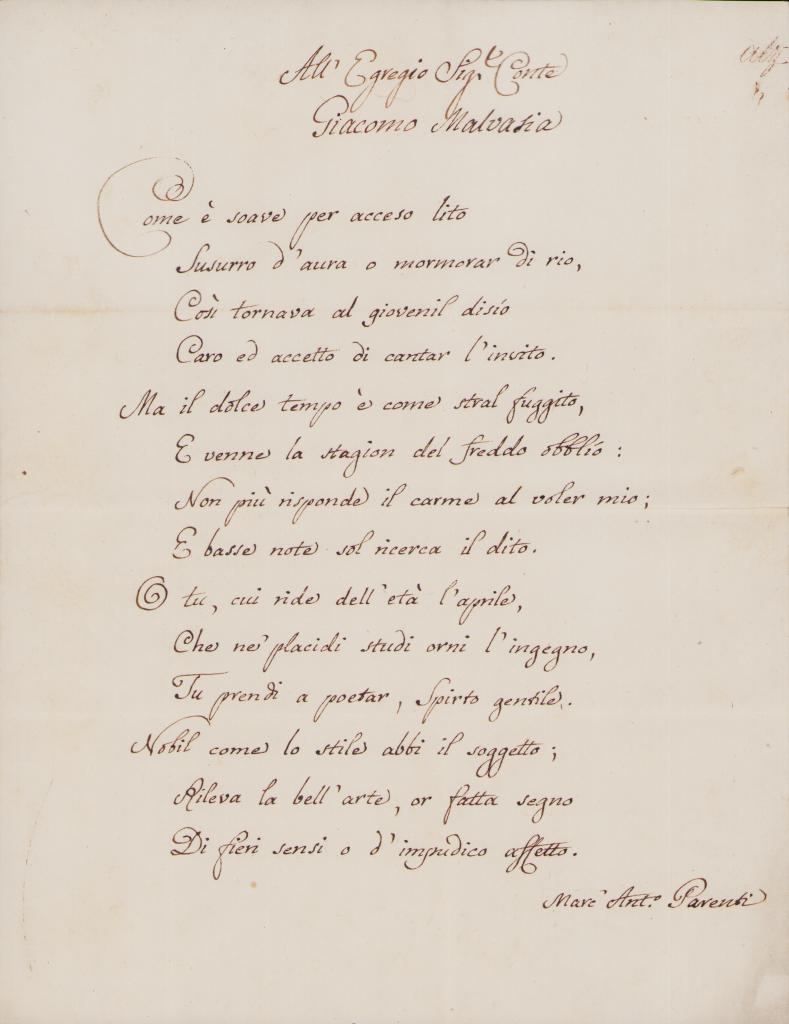 All' Egregio Sig.e Conte
Giacomo Malvasia
Come è soave per acceso lito
Susurro d'aura o mormorar di rio,
Così tornava al giovenil disìo
Caro ed accetto di cantar l'invito.
Ma il dolce tempo è come stral fuggito,
E venne la stagion del freddo obblío:
Non più risponde il carme al voler mio;
E basse note sol ricerca il dito.
O tu, cui ride dell'età l'aprile,
Che ne' placidi studi orni l'ingegno,
Tu prendi a poetar, Spirto gentile.
Nobil come lo stile abbi il soggetto;
Rileva la bell'arte, or fatta segno
Di fieri sensi o d'impudico affetto.
Marc' Ant.o Parenti